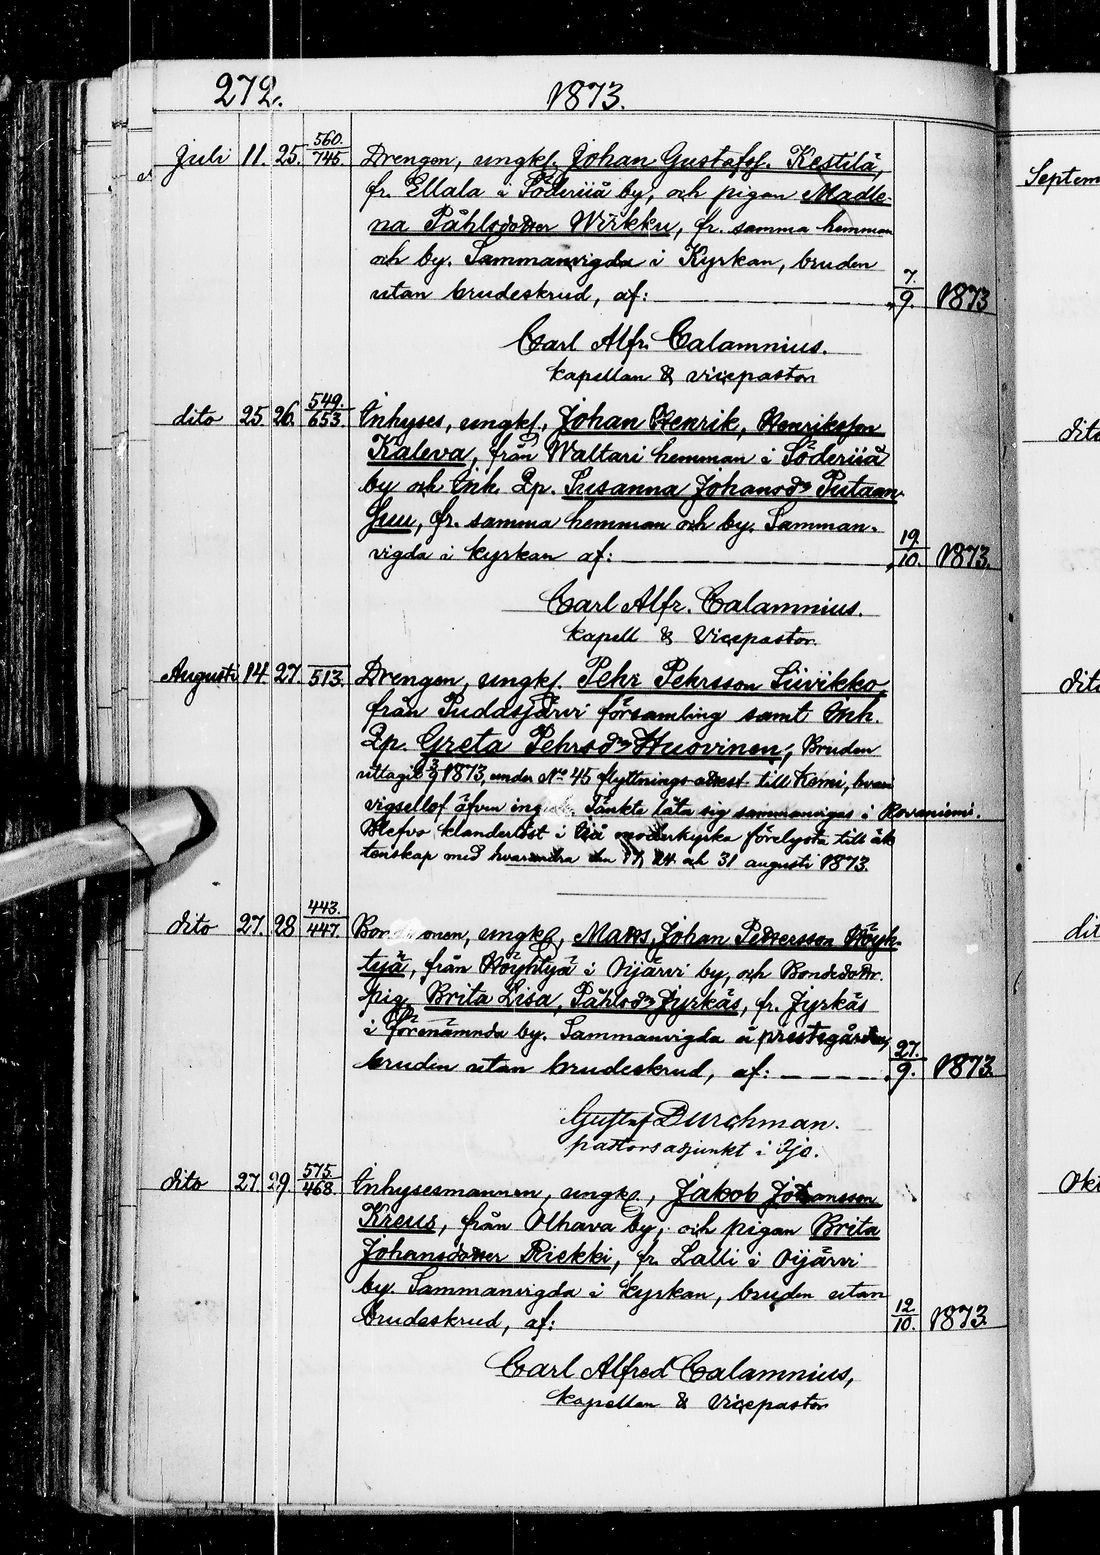 272. 1873.
Juli 11. 25. 560. 745. Drengen, ungk. Johan Gustafsf. Kestilä,
fr. Ellala i Söderijå by, och pigan Madle-
na Påhlsdotter Wirkku, fr. samma hemman
och by. Sammanvigda i Kyrkan, bruden
utan brudeskrud, af: 7. 9. 1873
Carl Alfr. Calamnius.
kapellan & vicepastor
dito 25 26. 549. 653. Inhyses, ungk. Johan Henrik, Henriksson
Kaleva, från Waltari hemman i Söderijå
by och Inh. Qp. Susanna Johansdr Putaan-
suu, fr. samma hemman och by. Samman-
vigda i kyrkan af: 19. 10. 1873.
Carl Alfr. Calamnius.
kapell & Vicepastor
Augusti 14 27. 513. Drengen, ungk. Pehr Pehrsson Siivikko,
från Pudasjärvi församling samt Inh.
Qp. Greta Pehrsdr Huovinen, Bruden
uttagit 1873, under No 45 flyttnings attest till Kemi,
vigsel äfven tänkte låta sig sammanvigas i Rovaniemi.
Blefvo klanderlöst i Ijå moderkyrka förelysta till äk
tenskap med hvarandra den 17, 24 och 31 augusti 1873.
dito 27. 28 443. 447. ungk, Matts Johan Pettersson Höyh-
tyä, från Höyhtyä i Oijärvi by, och Bondedottr.
pig. Brita Lisa, Påhlsdr Jyrkäs, fr. Jyrkäs
i förenämnda by. Sammanvigda å prestgården,
bruden utan brudeskrud, af: 27. 9. 1873.
Gustaf Durchman.
pastorsadjunkt i Ijo.
dito 27. 29. 575. 468. Inhysesmannen, ungk, Jakob Johansson
Kreus, från Olhava by, och pigan Brita
Johansdotter Riekki, fr. Lalli i Oijärvi
by. Sammanvigda i kyrkan, bruden utan
brudeskrud, af: 12. 10. 1873.
Carl Alfred Calamnius,
kapellan & Vicepastor
Septem
dito
dito
dit
Okt